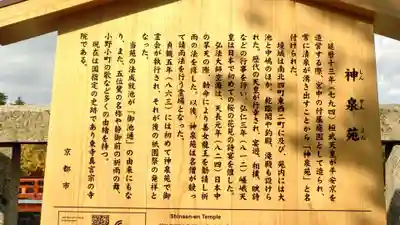 神泉苑
しん せん えん
延暦十三年（七九四）桓武天皇が平安京を
造営する際、宮中の付属庭園として造られ、
常に清泉が涌き出すことから「神泉苑」と名
付けられた。
境域は南北四町東西二町に及び、苑内には大
池と中嶋のほか、乾臨閣や釣殿、滝殿も設けら
れた。歴代の天皇が行幸され、宴遊、相撲、賦詩
などの行事を行い、弘仁三年（八一二）嵯峨天
皇は日本で初めての桜の花見の詩宴を催した。
弘法大師空海は、天長元年（八二四）日本中
の旱天の際、勅命により善女龍王を勧請し祈
雨の法を修した。以後、神泉苑は名僧が競っ
て請雨法を行う霊場となった。
貞観五年（八六三）には初めて神泉苑で御
霊会が執行され、それが後の祇園祭の発祥と
なった。
当苑の法成就池が「御池通」の由来にもな
り、また、五位鷺の名称や静御前の祈雨の舞、
小野小町の歌など多くの由緒を持つ。
現在は国指定の史跡であり東寺真言宗の寺
院である。
京都市
Shinsen-en Temple